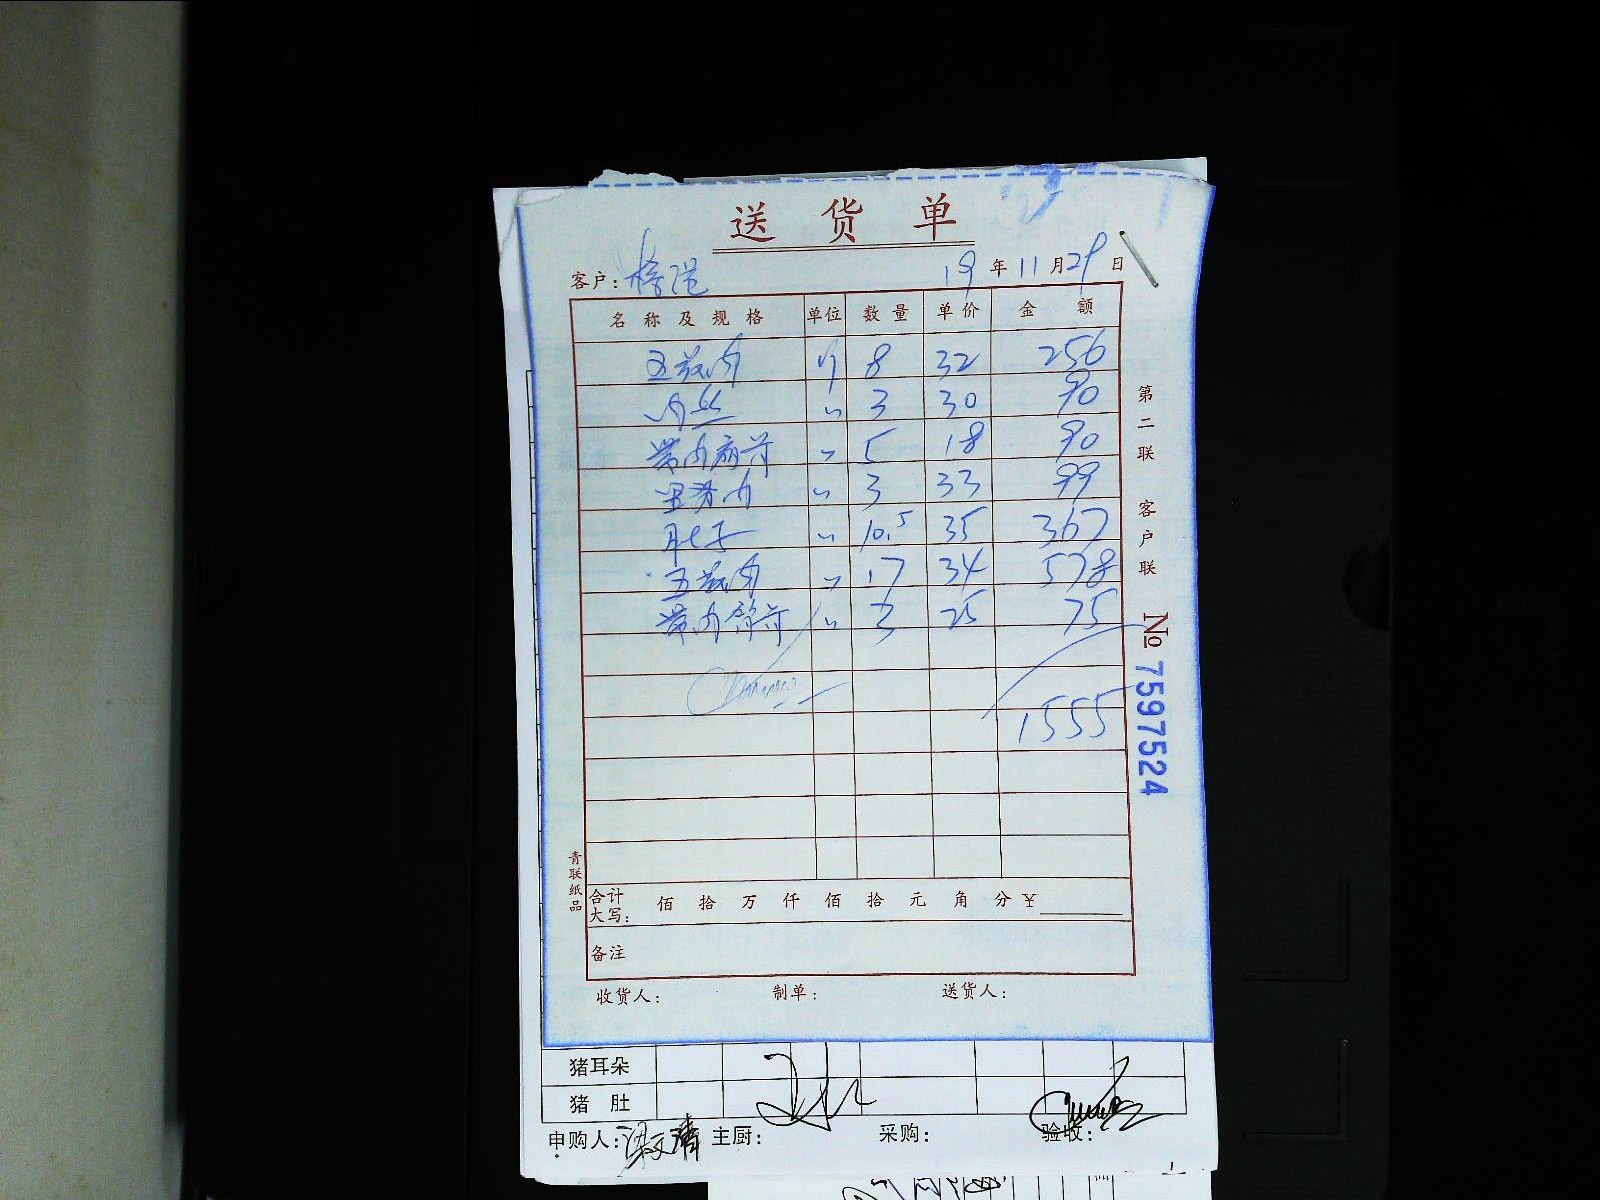 送货单
客户: 19年11月29日
名称及规格 单位 数量 单价 金额
五花肉 斤 8 32 256
肉丝 〃 3 30 90
带肉扇骨 〃 5 18 90
里脊肉 〃 3 33 99
肚子 〃 10.5 35 367
五花肉 〃 17 34 578
带肉 骨 〃 3 25 75
1555
合计大写: 佰 拾 万 仟 佰 拾 元 角 分 ¥
备注
收货人: 制单: 送货人:
第二联 客户联
No 7597524
青联纸品
猪耳朵
猪 肚
申购人: 主厨: 采购: 验收: